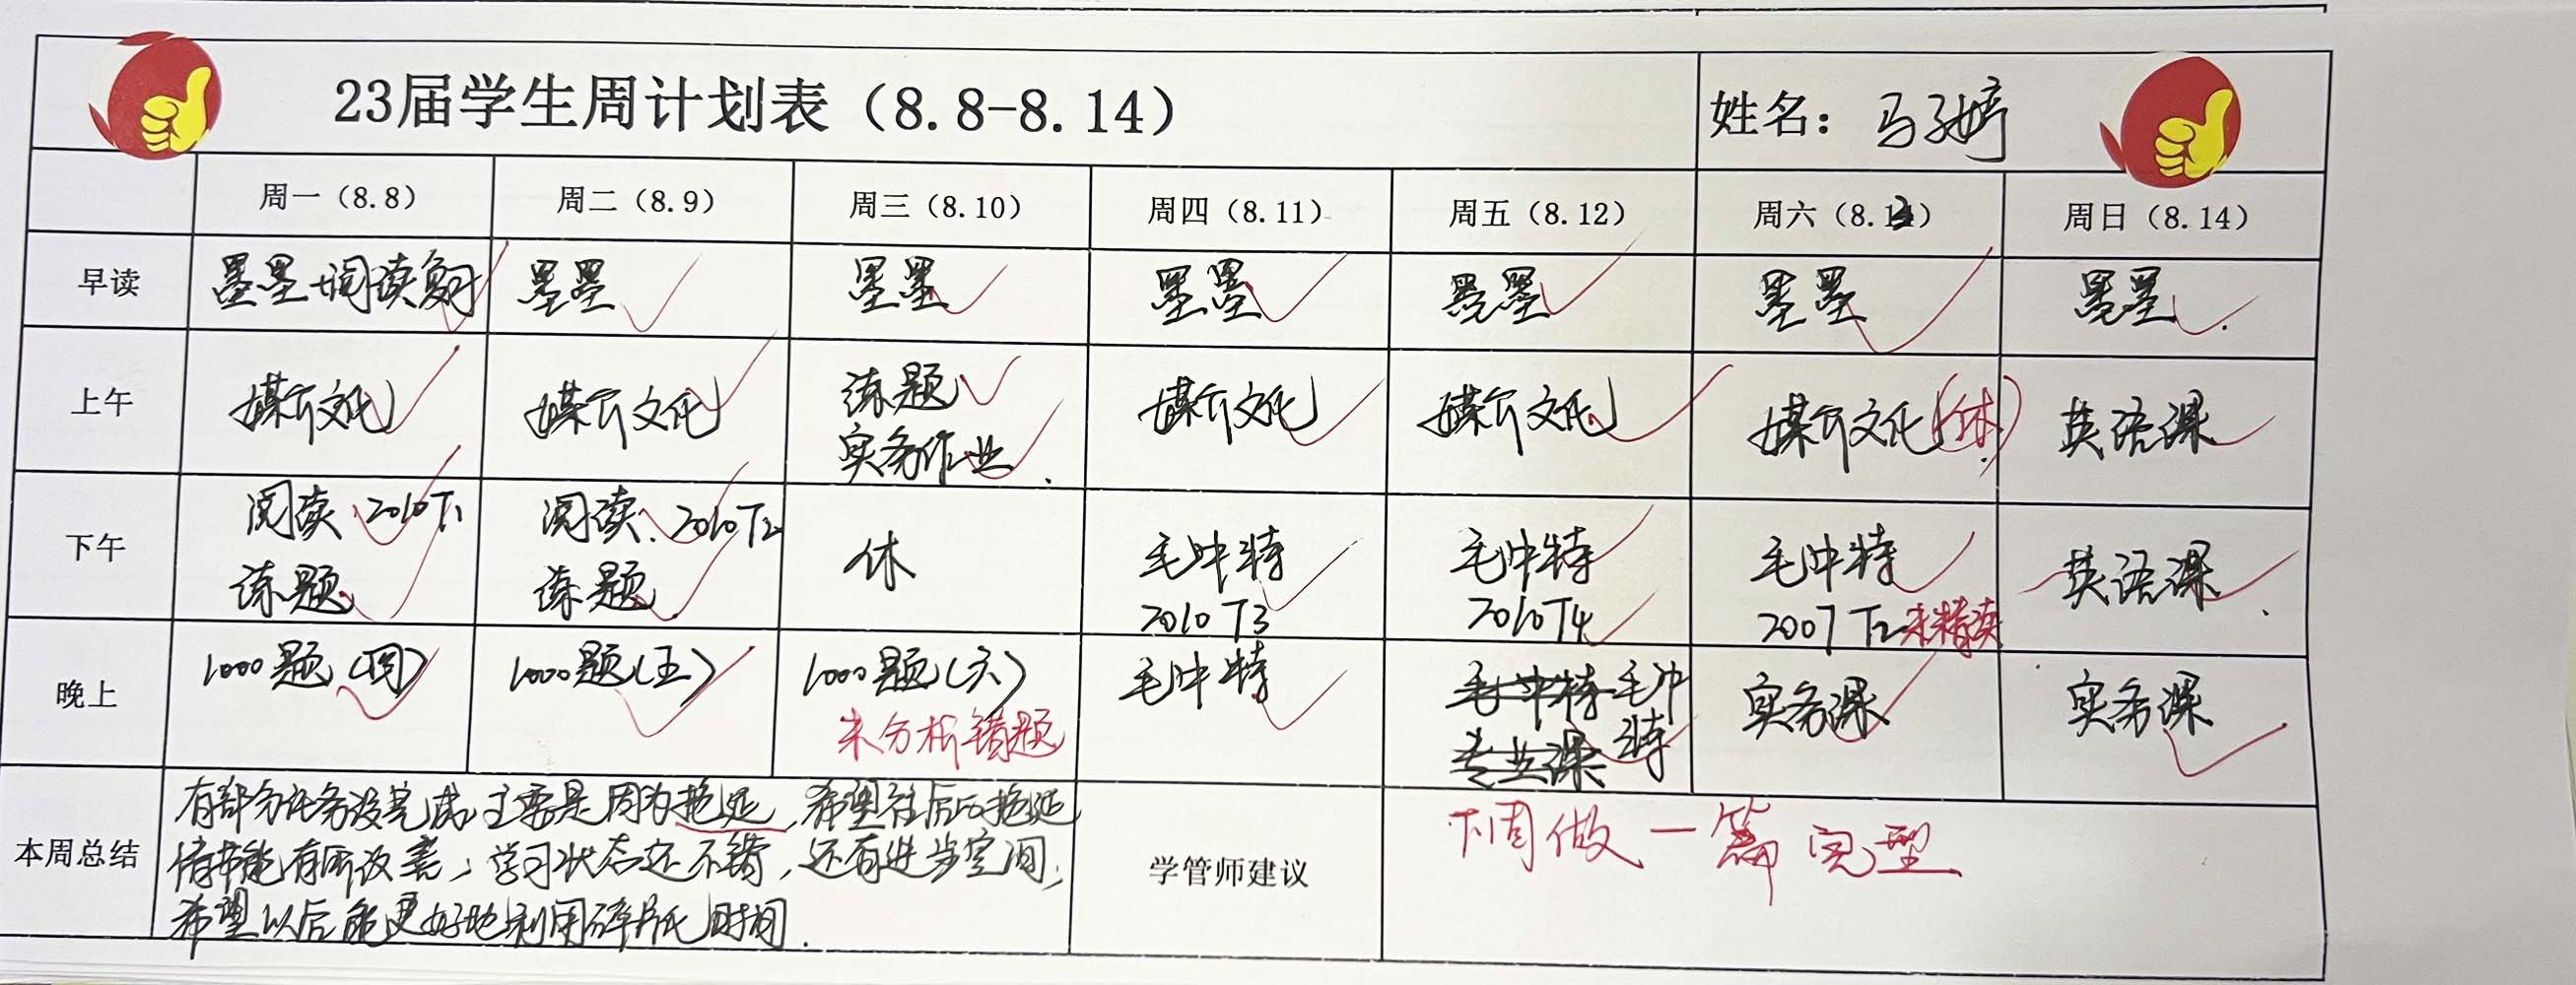 23届学生周计划表（8.8-8.14）
姓名：马子婷
周一（8.8）
周二（8.9）
周三（8.10）
周四（8.11）
周五（8.12）
周六（8.13）
周日（8.14）
早读
墨墨+阅读复习
墨墨
墨墨
墨墨
墨墨
墨墨
墨墨
上午
媒介文化
媒介文化
练题
实务作业
媒介文化
媒介文化
媒介文化(休)
英语课
下午
阅读:2010T1
练题
阅读:2010T2
练题
休
毛中特
2010 T3
毛中特
2010T4
毛中特
2007 T2未精读
英语课
晚上
1000题(四)
1000题(五)
1000题(六)
未分析错题
毛中特
毛中特 毛中
专业课 特
实务课
实务课
本周总结
有部分任务没完成,主要是因为拖延,希望往后的拖延
情节能有所改善,学习状态还不错,还有进步空间,
希望以后能更好地利用碎片化时间.
学管师建议
下周做一篇完型